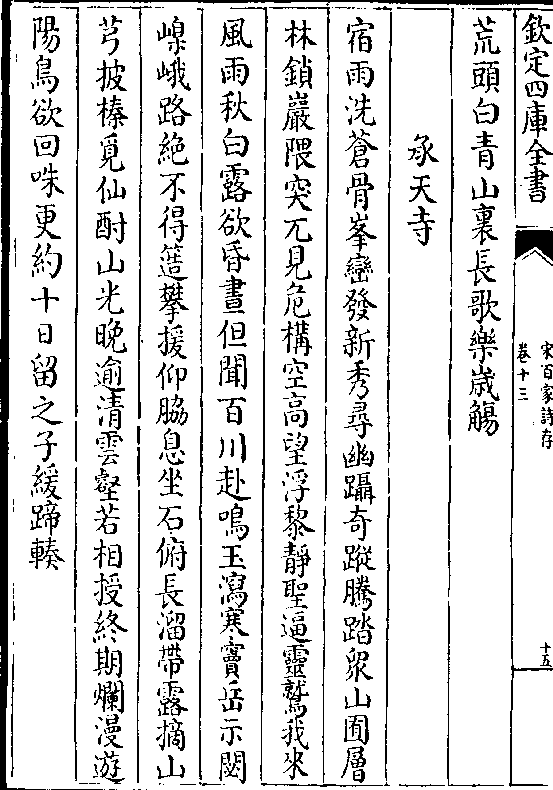 欽定四庫全書
宋百家詩存
卷十三
十五
荒頭白青山裏長歌樂歲觴
承天寺
宿雨洗蒼骨峯巒發新秀尋幽躡奇蹤騰踏衆山囿層
林鎖巖隈突兀見危構空高望浮黎靜聖逼靈鷲我來
風雨秋白露欲昏晝但聞百川赴鳴玉瀉寒竇岳示閟
嵲峨路絶不得簉攀援仰脇息坐石俯長溜帶露摘山
芎披榛覓仙酎山光晚逾清雲壑若相授終期爛漫遊
陽烏欲回咮更約十日留之子緩蹄轃